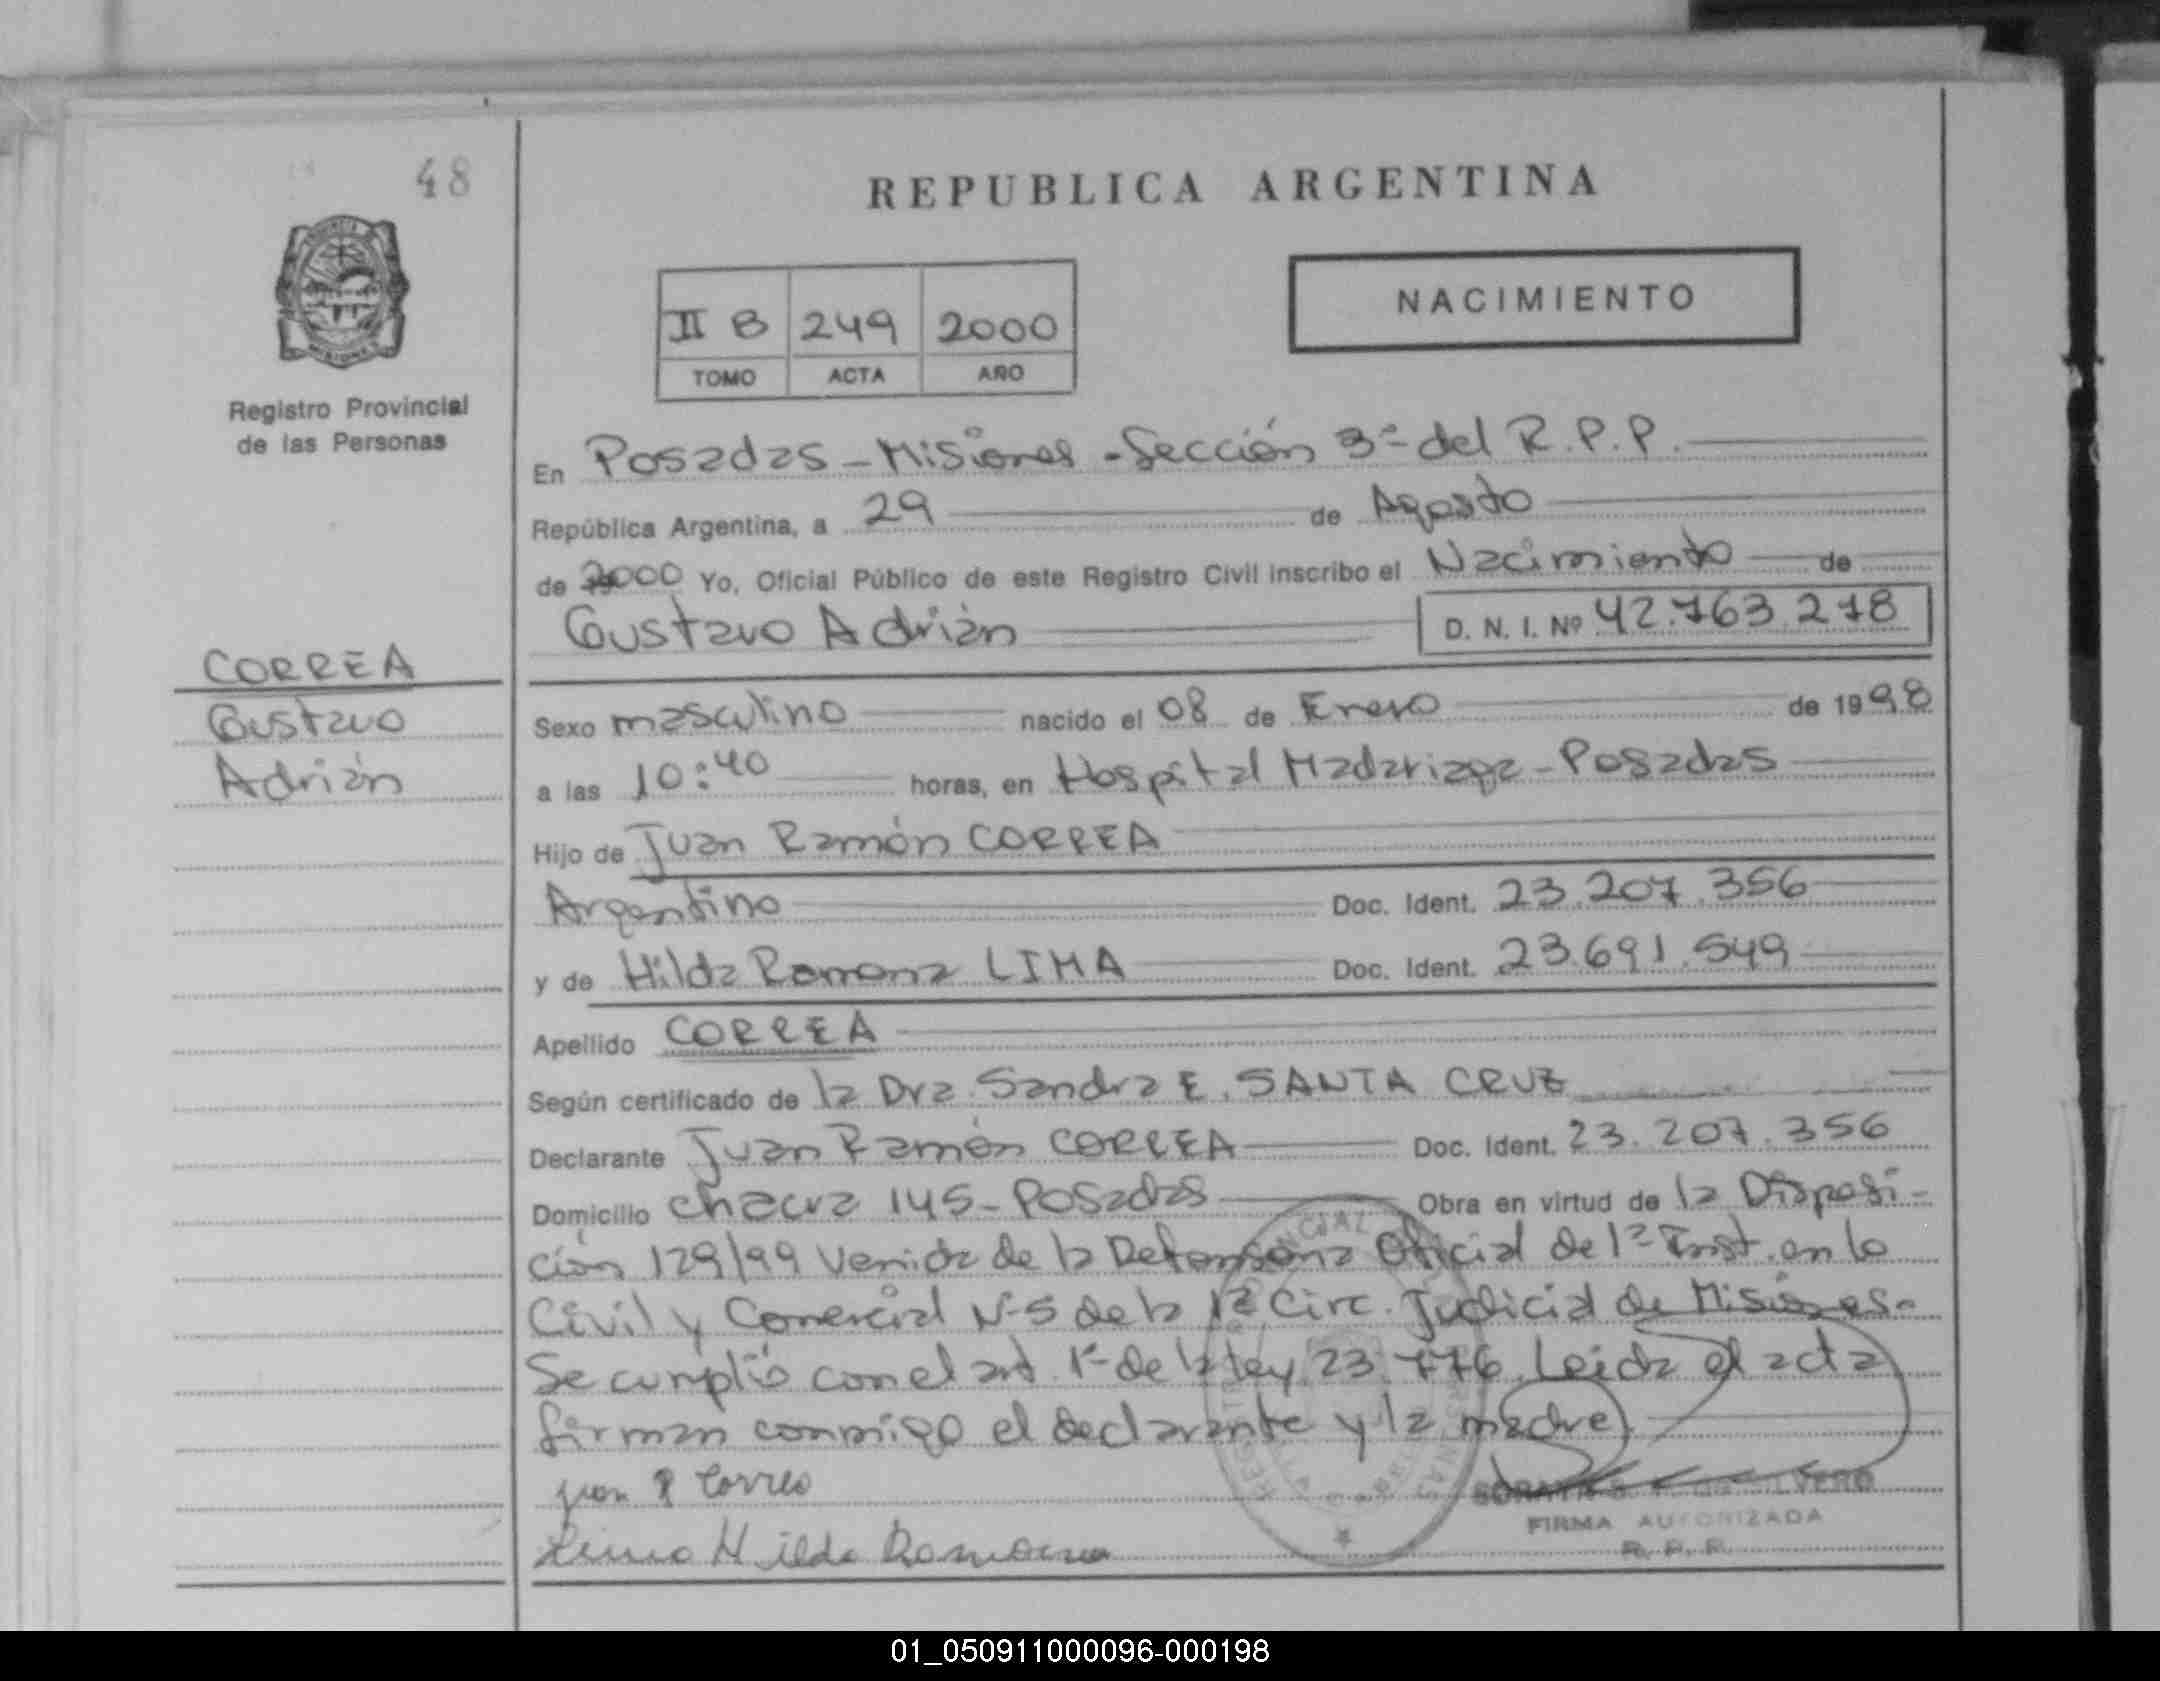 48
REPUBLICA ARGENTINA
NACIMIENTO
II B 249 2000
TOMO ACTA AÑO
Registro Provincial
de las Personas
En Posadas - Misiones - Sección 3ª del R.P.P.
República Argentina, a 29 de Agosto
de 2000 Yo, Oficial Público de este Registro Civil inscribo el Nacimiento de
Gustavo Adrián D. N. I. Nº 42.763.278
CORREA
Gustavo
Adrián
Sexo masculino nacido el 08 de Enero de 1998
a las 10:40 horas, en Hospital Madariaga - Posadas
Hijo de Juan Ramón CORREA
Argentino Doc. Ident. 23.207.356
y de Hilda Ramona LIMA Doc. Ident. 23.691.549
Apellido CORREA
Según certificado de la Dra. Sandra E. SANTA CRUZ
Declarante Juan Ramón CORREA Doc. Ident. 23.207.356
Domicilio Chacra 145 - Posadas Obra en virtud de la Disposi-
ción 129/99 Venida de la Defensoria Oficial de 1ª Inst. en lo
Civil y Comercial Nº 5 de la 1ª Circ. Judicial de Misiones.
Se cumplió con el art. 1º de la ley 23.776. Leida el acta
firman conmigo el declarante y la madre.
juan R Correa
Lima Hilda Ramona
SILVERO
FIRMA AUTORIZADA
R. P. P.
01_050911000096-000198